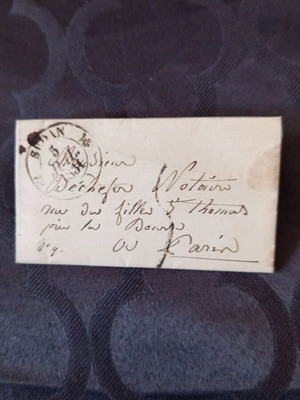 SEDAN
5
Monsieur
Dechefer Notaire
rue du filles St thomas
près la Bourse
No 9. à Paris